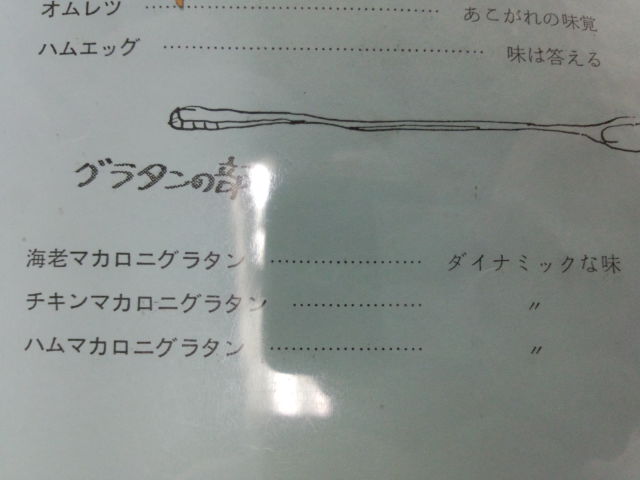 オムレツ ………………………………… あこがれの味覚
ハムエッグ ………………………………… 味は答える
グラタンの部
海老マカロニグラタン ………………… ダイナミックな味
チキンマカロニグラタン ………………… 〃
ハムマカロニグラタン ………………… 〃